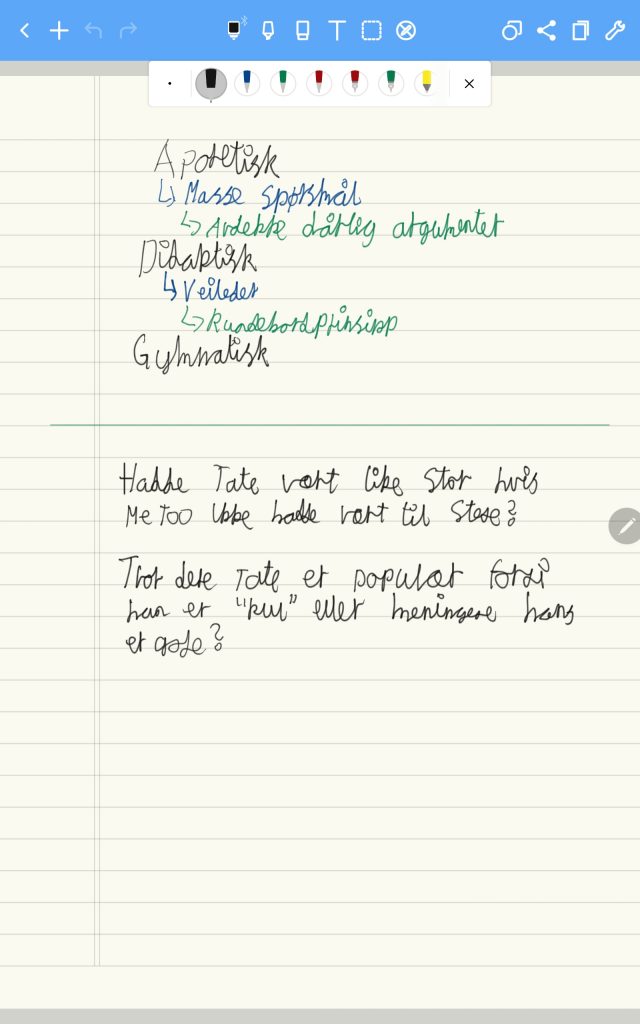 Aporetisk
↳ Masse spørsmål
↳ Avdekke dårlig argumenter
Didaktisk
↳ Veileder
↳ Rundebordprinsipp
Gymnatisk
Hadde Tate vært like stor hvis
Me Too ikke hadde vært til stese?
Tror dere Tate er populær fordi
han er "kul" eller meningene hans
er gode?